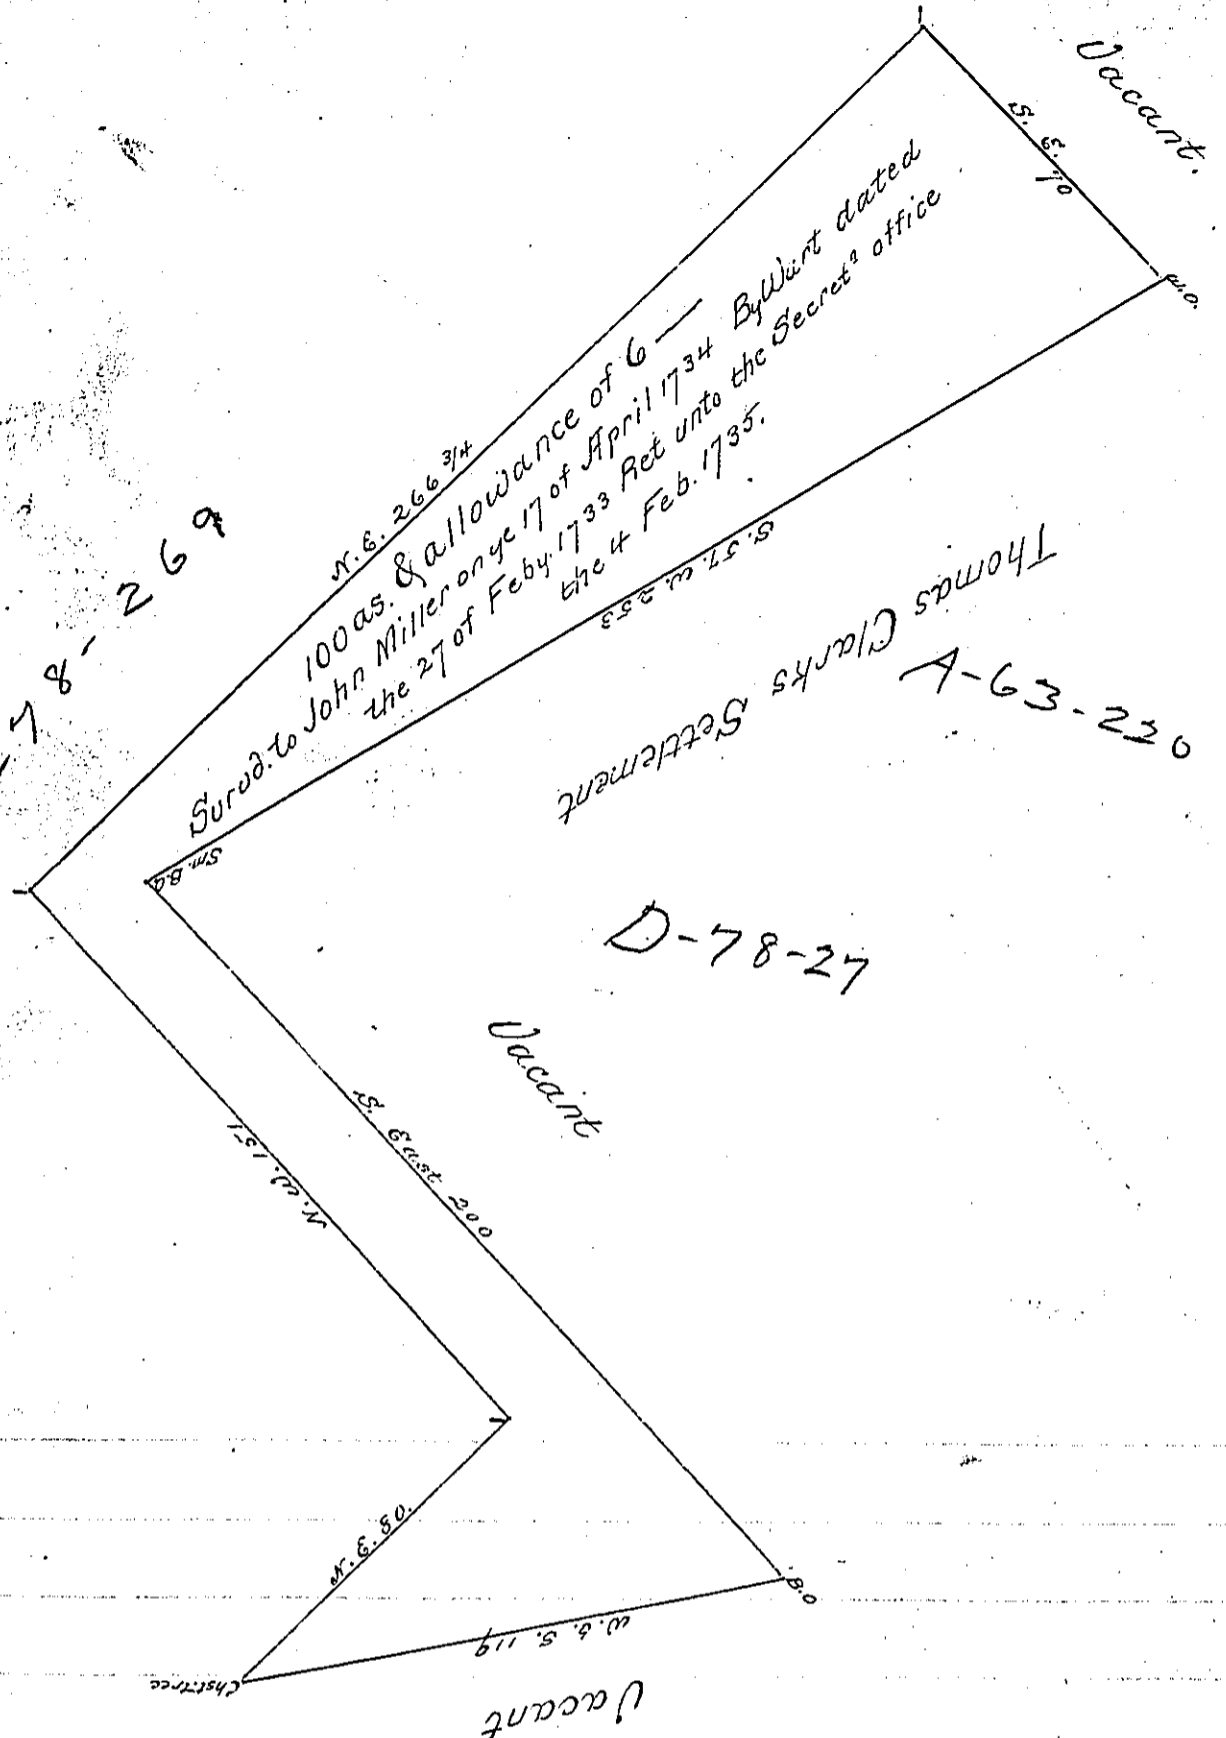 Vacant.
S. E. 70
W.O.
N. E. 266 3/4
100 as. & allowance of 6 —
Survd. to John Miller on ye 17 of April 1734 By Warrt dated
the 27 of Feby. 1733 Ret unto the Secret's office
the 4 Feb. 1735.
S. 57. W. 253
Thomas Clarks Settlement
A-63-220
78-269
Sm. B.O.
D-78-27
Vacant
S. East 200
N. W. 151
N. E. 80.
B.O
W. b. S. 119
Chst. Tree
Vacant